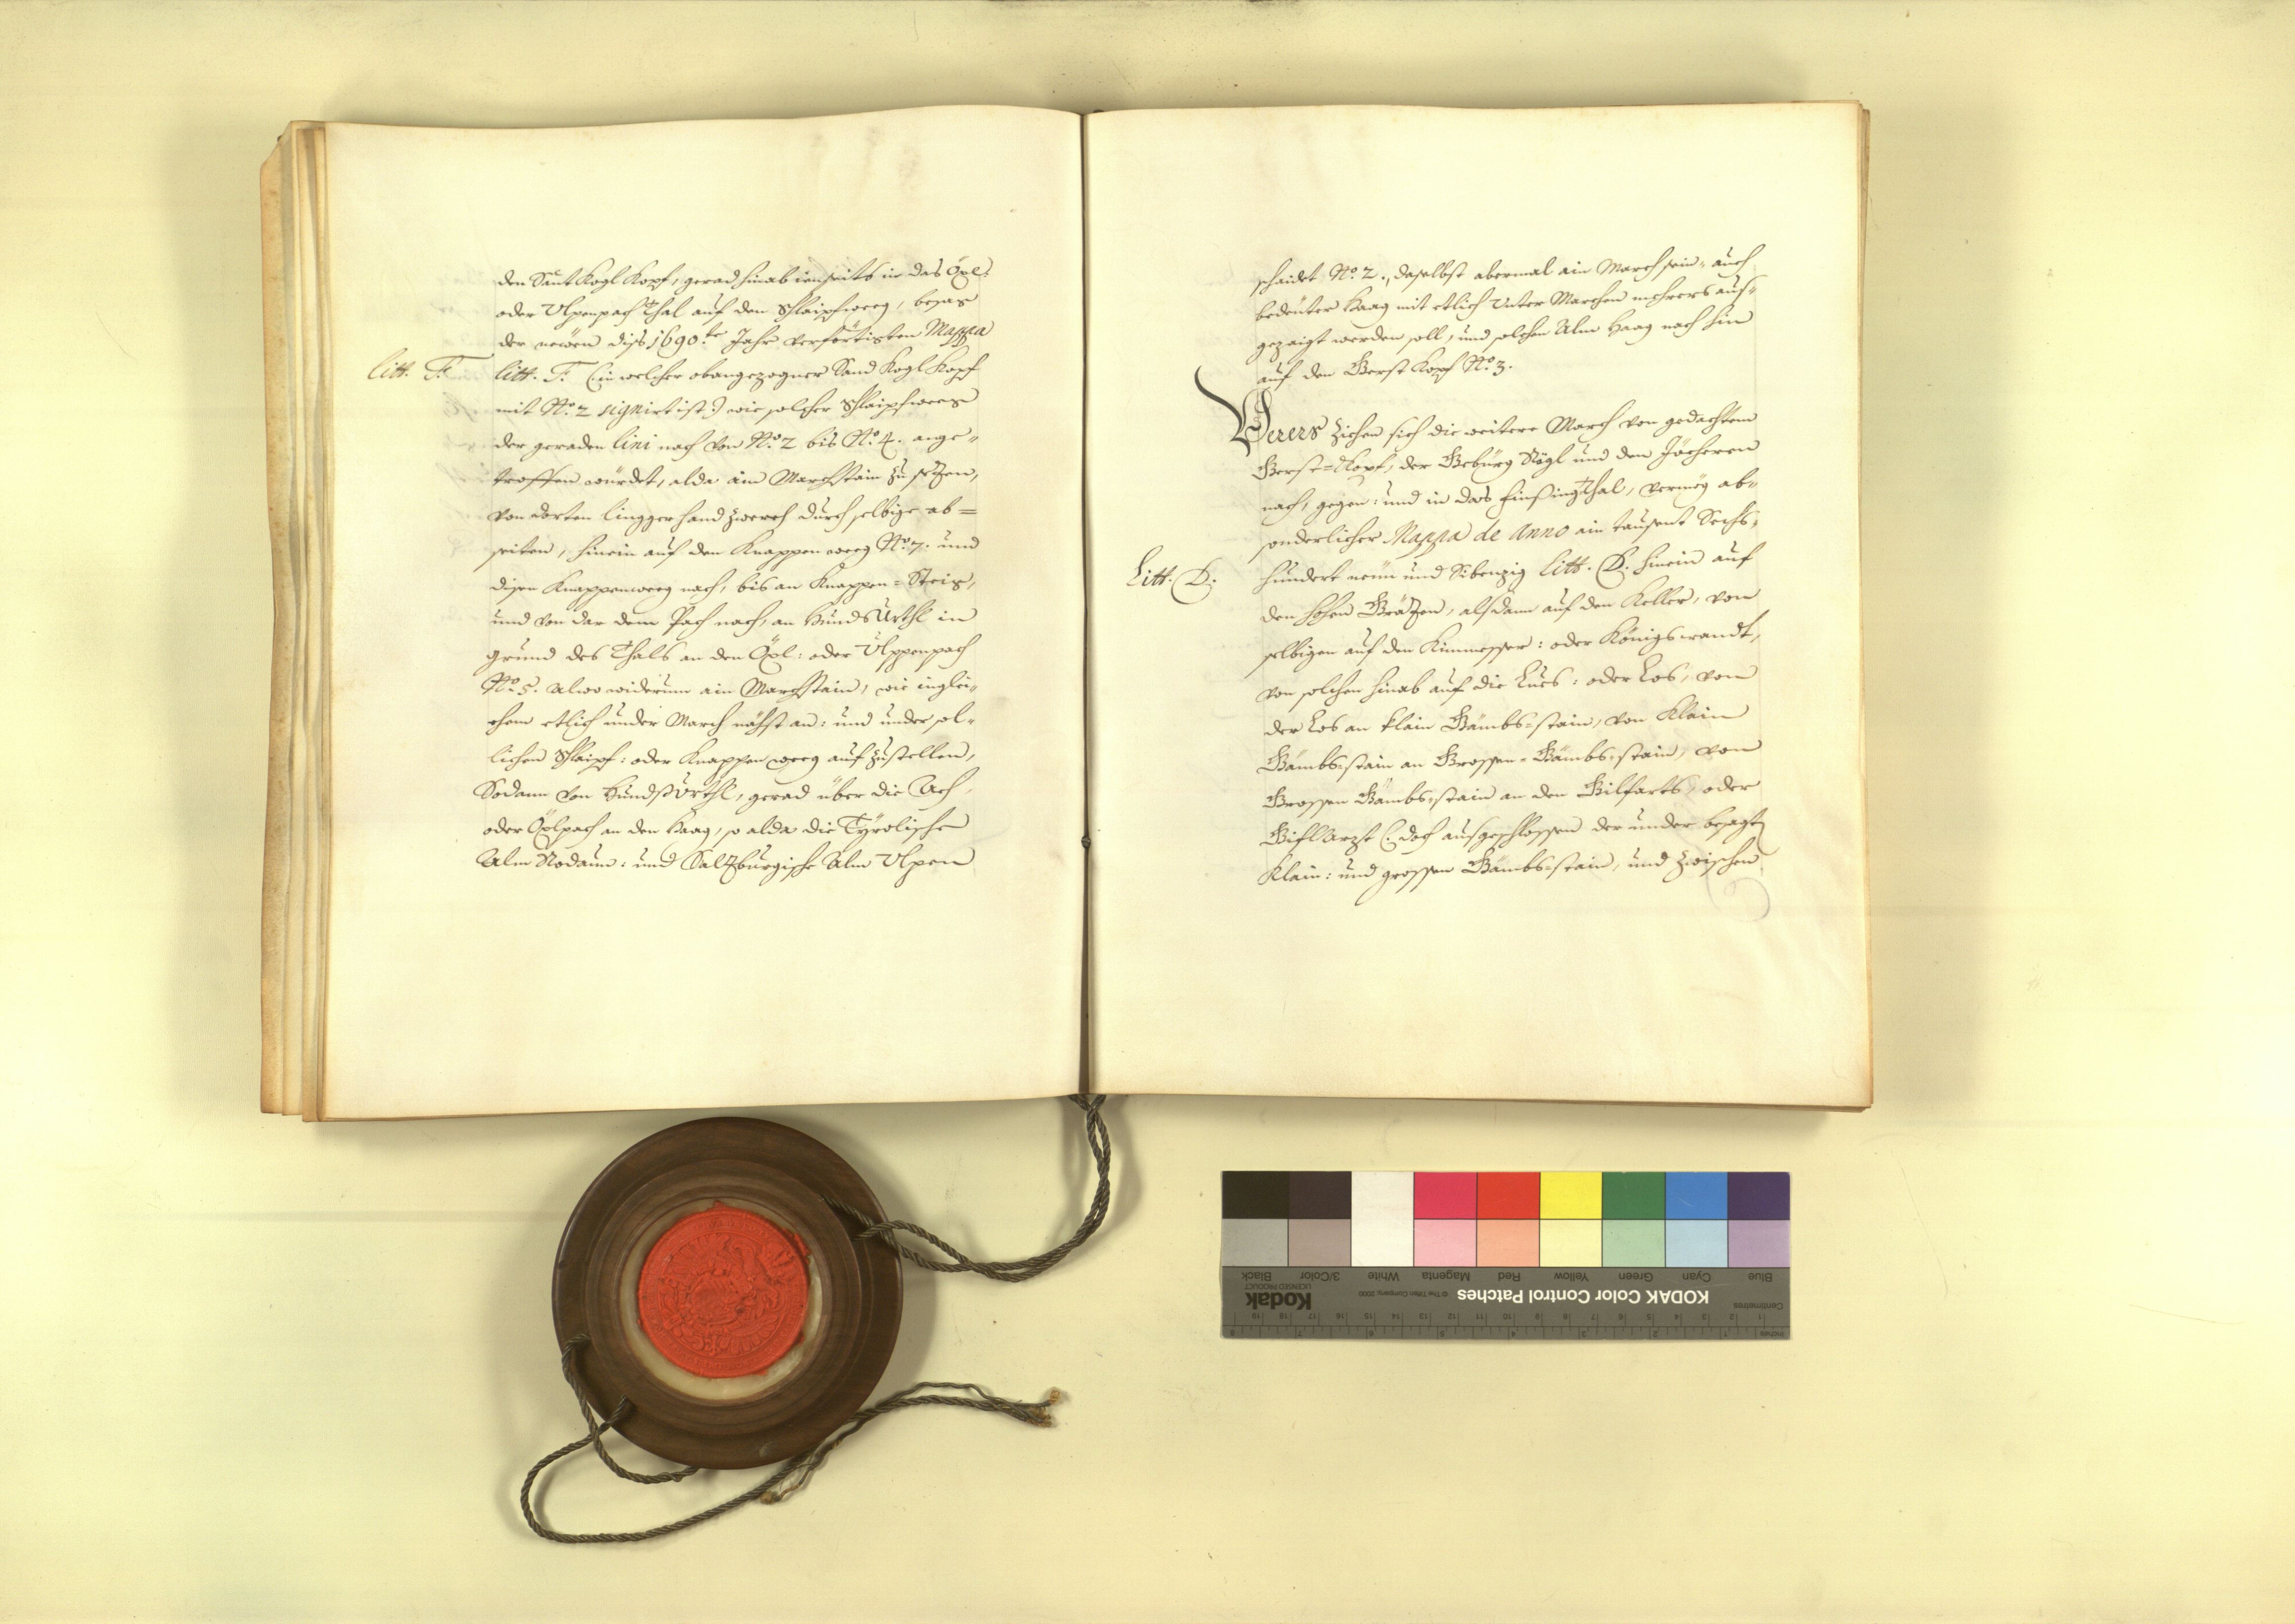 den Sant Kogl Kopf, gerad hinab ienseits in das Öxl:
oder Vlpenpach Thal auf den Schlaipfweeg, besag
der newen diss 1690.te Jahr verförtigten Mappa
litt. F.
litt. F. (in welcher obangezogner Sand Kogl Kopf
mit No. 2 signirt ist:) wie solcher Schlaipfweeg
der geraden lini nach von No. 2 bis No. 4. ange„
troffen würdet, alda ain Marchstain zu setzen,
von dorten linggerhand zwerch durch selbige ab=
seiten, hinein auf den Knappen weeg No. 7. und
disen Knappenweeg nach, bis an Knappen=Steig,
und von dar dem Pach nach, an Hunds Urthl in
grund des Thals an den Öxl: oder Vlppenpach
No. 5. alwo widerum ain Marchstain, wie inglei„
chem etlich under March nächst an: und under sol„
lichen Schlaipf: oder Knappen weeg aufzustellen,
Sodann von Hundssürthl, gerad über die Ach,
oder Öxlpach an den Haag, so alda die Tyrolische
Alm Rodaun: und Saltzburgische Alm Vlpen
schaidet No. 2., daselbst abermal ain March sein, auch
bedeuter Haag mit etlich Unter Marchen mehrers aus„
gezaigt werden soll, und solchen Alm Haag nach hin
auf den Gerst Kopf No. 3.
Verers ziehen sich die weitere March von gedachtem
Gerst=Kopf, der Gebürg Rigl und den Jöcheren
nach, gegen: und in das Finsingthal, vermög ab„
sonderlicher Mappa de Anno ain tausent Sechs„
Litt. D.
hundert neün und Sibenzig litt. D. hinein auf
den hohen Grätzen, alsdann auf den Keller, von
selbigen auf den Kimmesser: oder Königswandt,
von solchen hinab auf die Lues: oder Los, von
der Los an klain Gämbs=stain, von Klain
Gämbs=stain an Grossen=Gämbs=stain, von
Grossen Gämbs=stain an den Gilfarts, oder
(: doch ausgeschlossen der under besagt
Klain: und grossen Gämbs=stain, und zwischen
KODAK Color Control Patches
© The Tiffen Company, 2000
Kodak
LICENSED PRODUCT
Blue Cyan Green Yellow Red Magenta White 3/Color Black
Centimetres
Inches